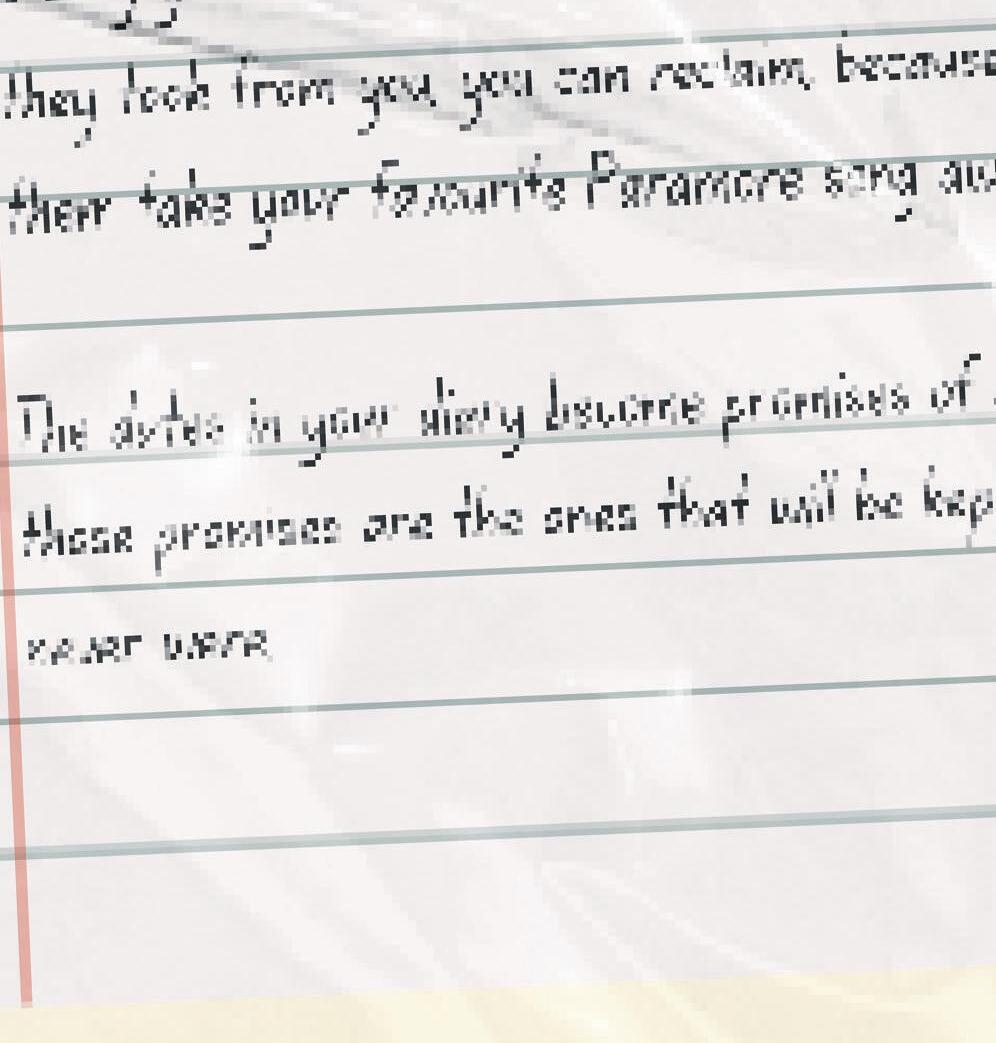 they took from you, you can reclaim, because
them take your favourite Paramore song
The dates in your diary become promises of
those promises are the ones that will be
never were